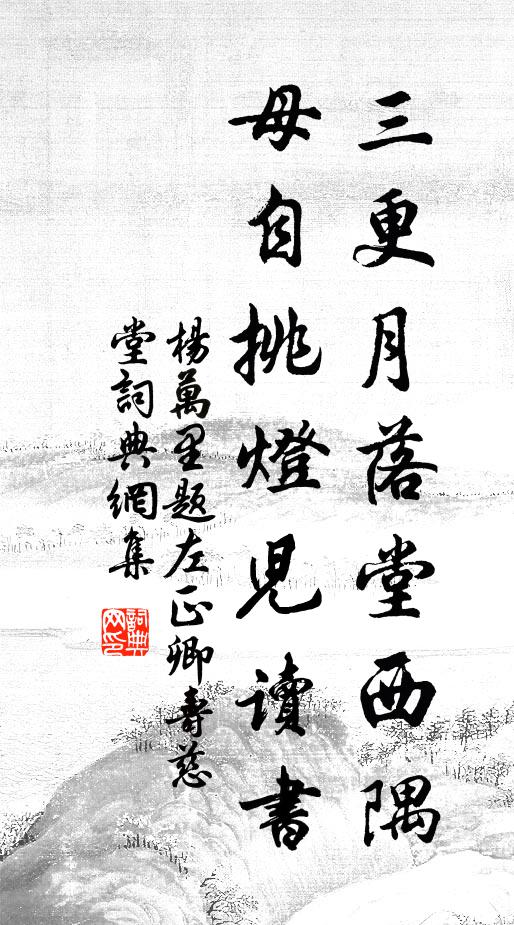 三更月落堂西隅
母自挑燈兒讀書
楊萬里題左正卿壽慈
堂詞典網集
詞典
网印